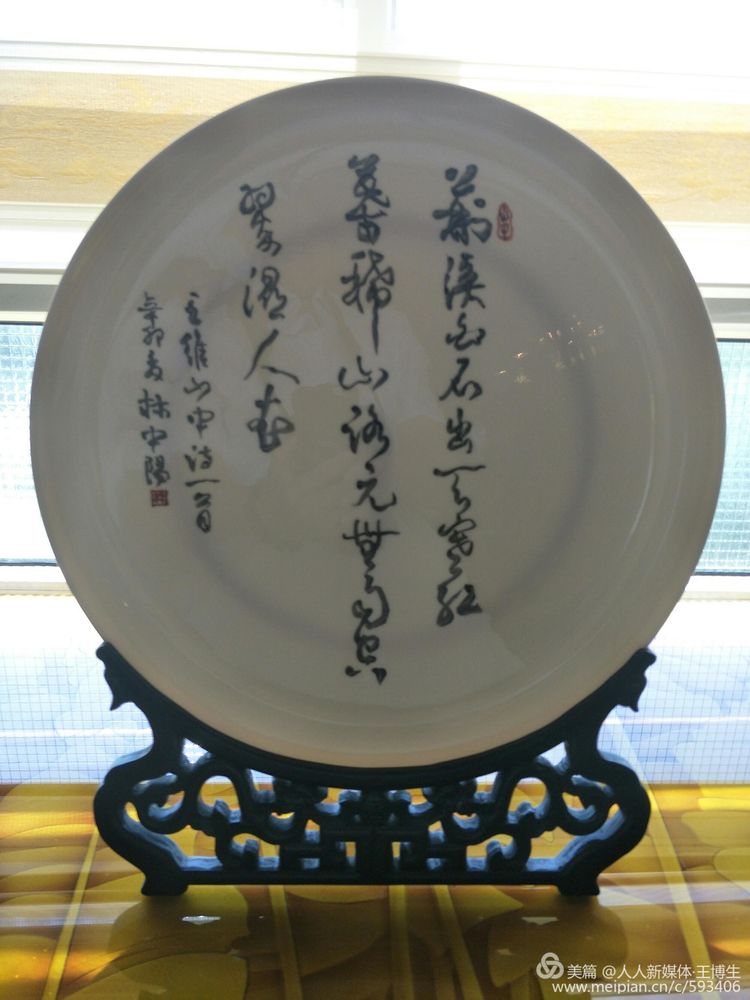 荆溪白石出天寒红
葉也稀山路元無雨空
翠湿人衣
王维山中诗一首
辛卯夏林中陽
美篇 @人人新媒体·王博生
www.meipian.cn/c/593406